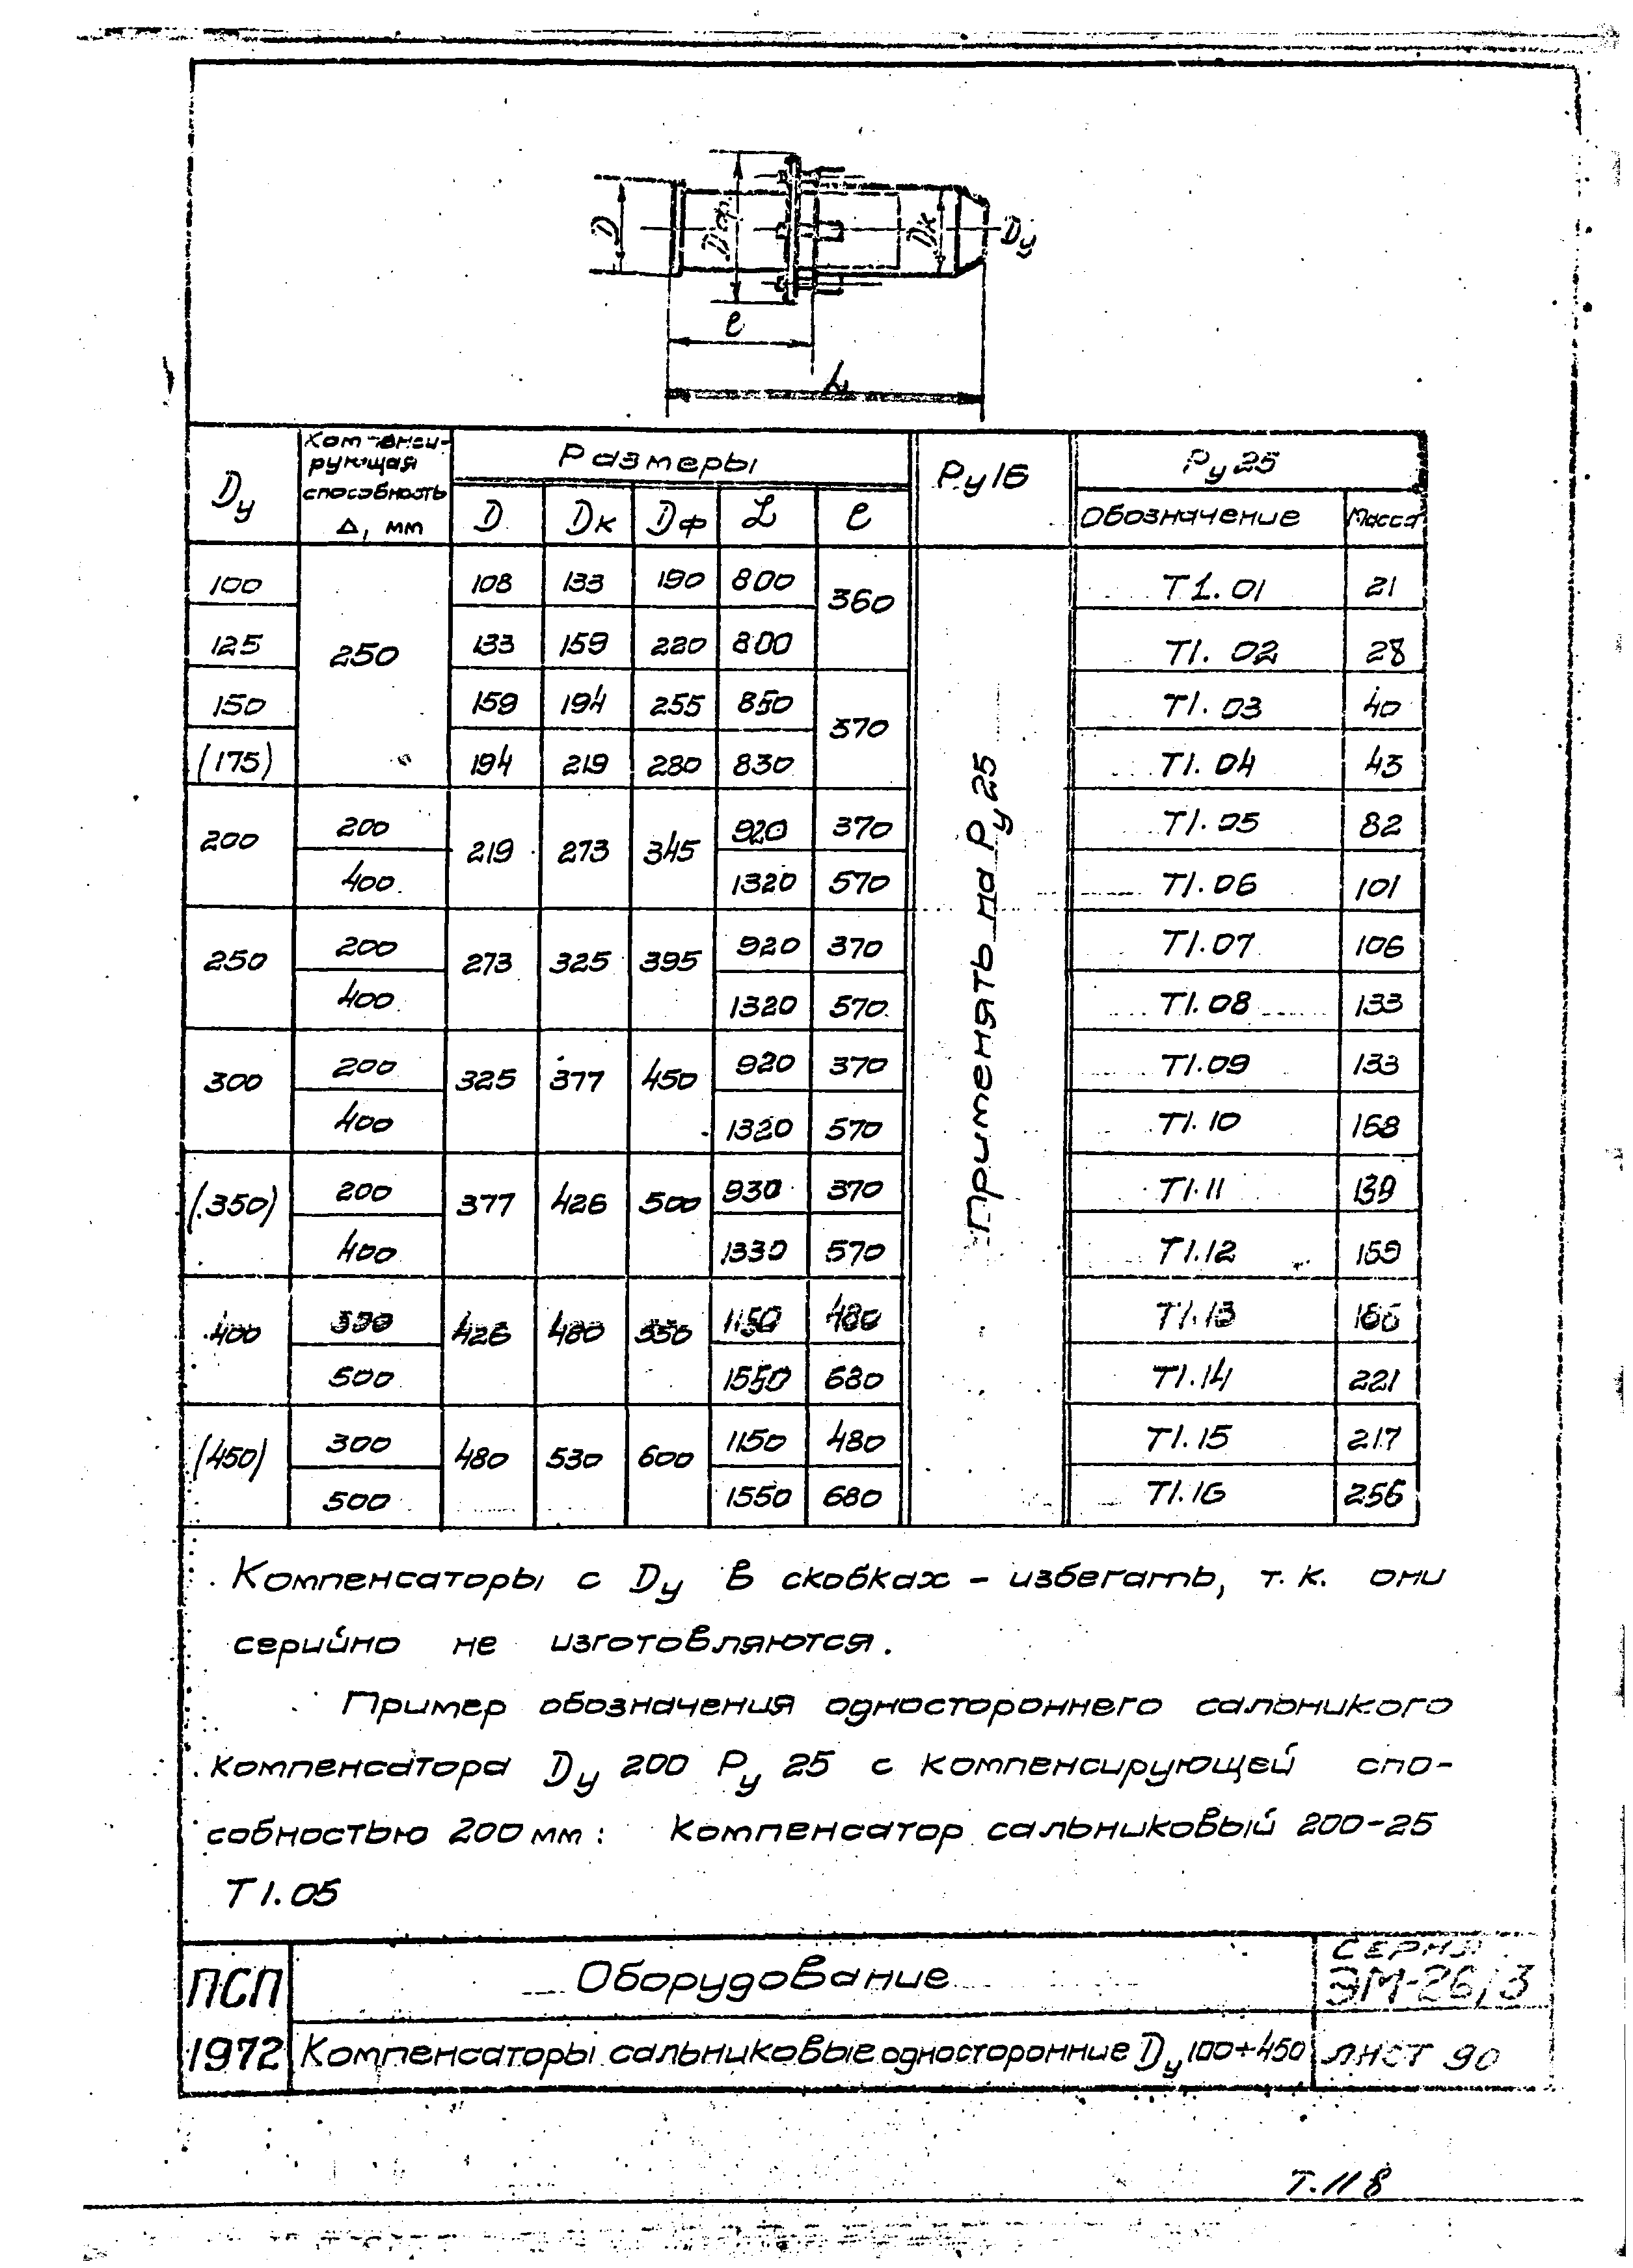 D Dф. Dк Dу
ℓ
L
Dу Компенсирующая способность Δ, мм Размеры Ру16 Ру25
D Dк Dф L ℓ Обозначение Масса
Применять на Ру25
100 250 108 133 190 800 360 Т1.01 21
125 133 159 220 800 Т1.02 28
150 159 194 255 850 370 Т1.03 40
(175) 194 219 280 830 Т1.04 43
200 200 219 273 345 920 370 Т1.05 82
400 1320 570 Т1.06 101
250 200 273 325 395 920 370 Т1.07 106
400 1320 570 Т1.08 133
300 200 325 377 450 920 370 Т1.09 133
400 1320 570 Т1.10 168
(350) 200 377 426 500 930 370 Т1.11 139
400 1330 570 Т1.12 159
400 300 426 480 550 1150 480 Т1.13
500 1550 680 Т1.14 221
(450) 300 480 530 600 1150 480 Т1.15 217
500 1550 680 Т1.16 256
Компенсаторы с Dу в скобках – избегать, т.к. они
серийно не изготовляются.
Пример обозначения одностороннего сальникого
компенсатора Dу 200 Ру 25 с компенсирующей спо-
собностью 200 мм: Компенсатор сальниковый 200-25
Т1.05
ПСП Оборудование СЕРИЯ
ЭМ-26/3
1972 Компенсаторы сальниковые односторонние Dу 100÷450 ЛИСТ 90
Т.118